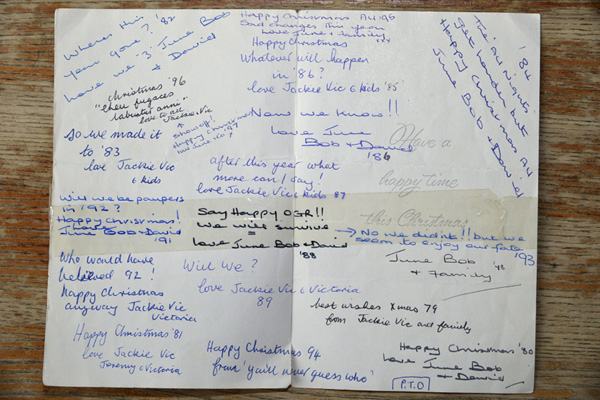 Where has this
year gone? '82
Love we '3' June Bob
& David
Christmas '96
"eheu fugaces
labuntur anni"
love to all
Jackie Vic
↑
show off!
Happy Christmas
So we made it
to '83
love Jackie Vic
& kids
Will we be paupers
in 1992?
Happy Christmas!
Love
June Bob & David
'91
Who would have
believed 92!
happy Christmas
anyway Jackie Vic
Victoria
Happy Christmas '81
love Jackie Vic
Jeremy & Victoria
Happy Christmas All '96
Sad changes this year
love June & family
xxx
Happy Christmas
Whatever will happen
in '86?
love Jackie Vic & kids '85
Now we know!!
Love June
Bob & David
'86
after this year what
more can I say!
love Jackie Vic & kids 87
Say Happy OSR!!
We will survive
=
love June Bob & David
'88
Will We?
love Jackie Vic & Victoria
89
Happy Christmas 94
from 'you'll never guess who'
The 'all nights' '84
get harder but
Happy Christmas All
June Bob & David
Have a
happy time
this Christmas
→ No we didn't!! but we
seem to enjoy our fate '93
June Bob
& Family
best wishes Xmas 79
from Jackie Vic and family
Happy Christmas '80
love June Bob
& David
P.T.O